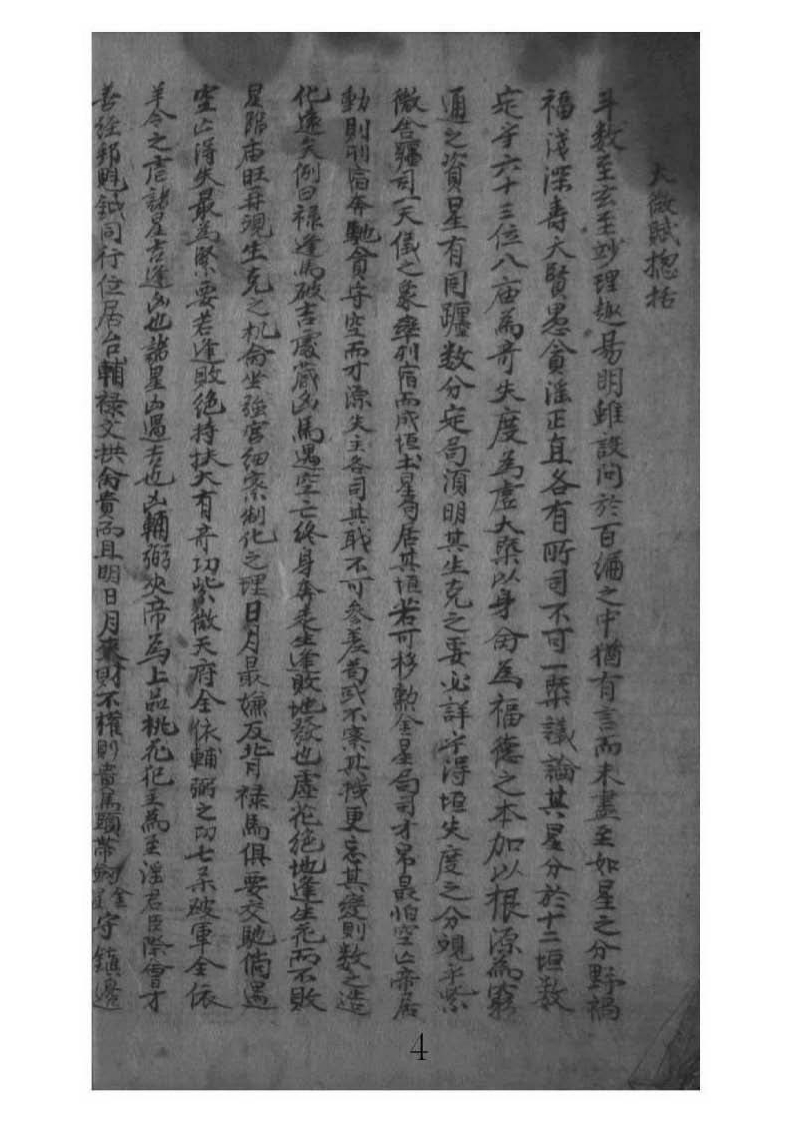 大微賦摠括
斗数至玄至妙理趣易明雖設问於百编之中猶有言而未盡至如星之分野禍
福浅深寿夭賢愚貪淫正直各有所司不可一槩議論其星分於十二垣数
定乎六十三位入庙為奇失度為虚大槩以身命為福德之本加以根源為窮
通之資星有同躔数分定局須明其生克之要必詳乎得垣失度之分覌乎紫
微舍躔司一天儀之象率列宿而成垣土星苟居其垣若可移動金星局司才帛最怕空亡帝居
動則列宿奔馳貪守空而才源失主各司其职不可参差苟或不察其機更忘其变則数之造
化遠矣例曰禄逢馬破吉處藏凶馬遇空亡终身奔走生逢敗地發也虚花绝地逢生花而不敗
星臨庙旺再覌生克之机命坐強宮细察制化之理日月最嫌反背禄馬俱要交馳倘遇
空亡得失最為緊要若逢敗绝持扶大有奇功紫微天府全依輔弼之功七杀破軍全依
羊令之虐諸星吉逢凶也諸星凶遇吉也凶輔弼夾帝為上品桃花犯主為至淫君臣際會才
善经邦魁鉞同行位居台輔禄文拱命貴而且明日月夹財不權則富馬頭帶劍鎮邊
4